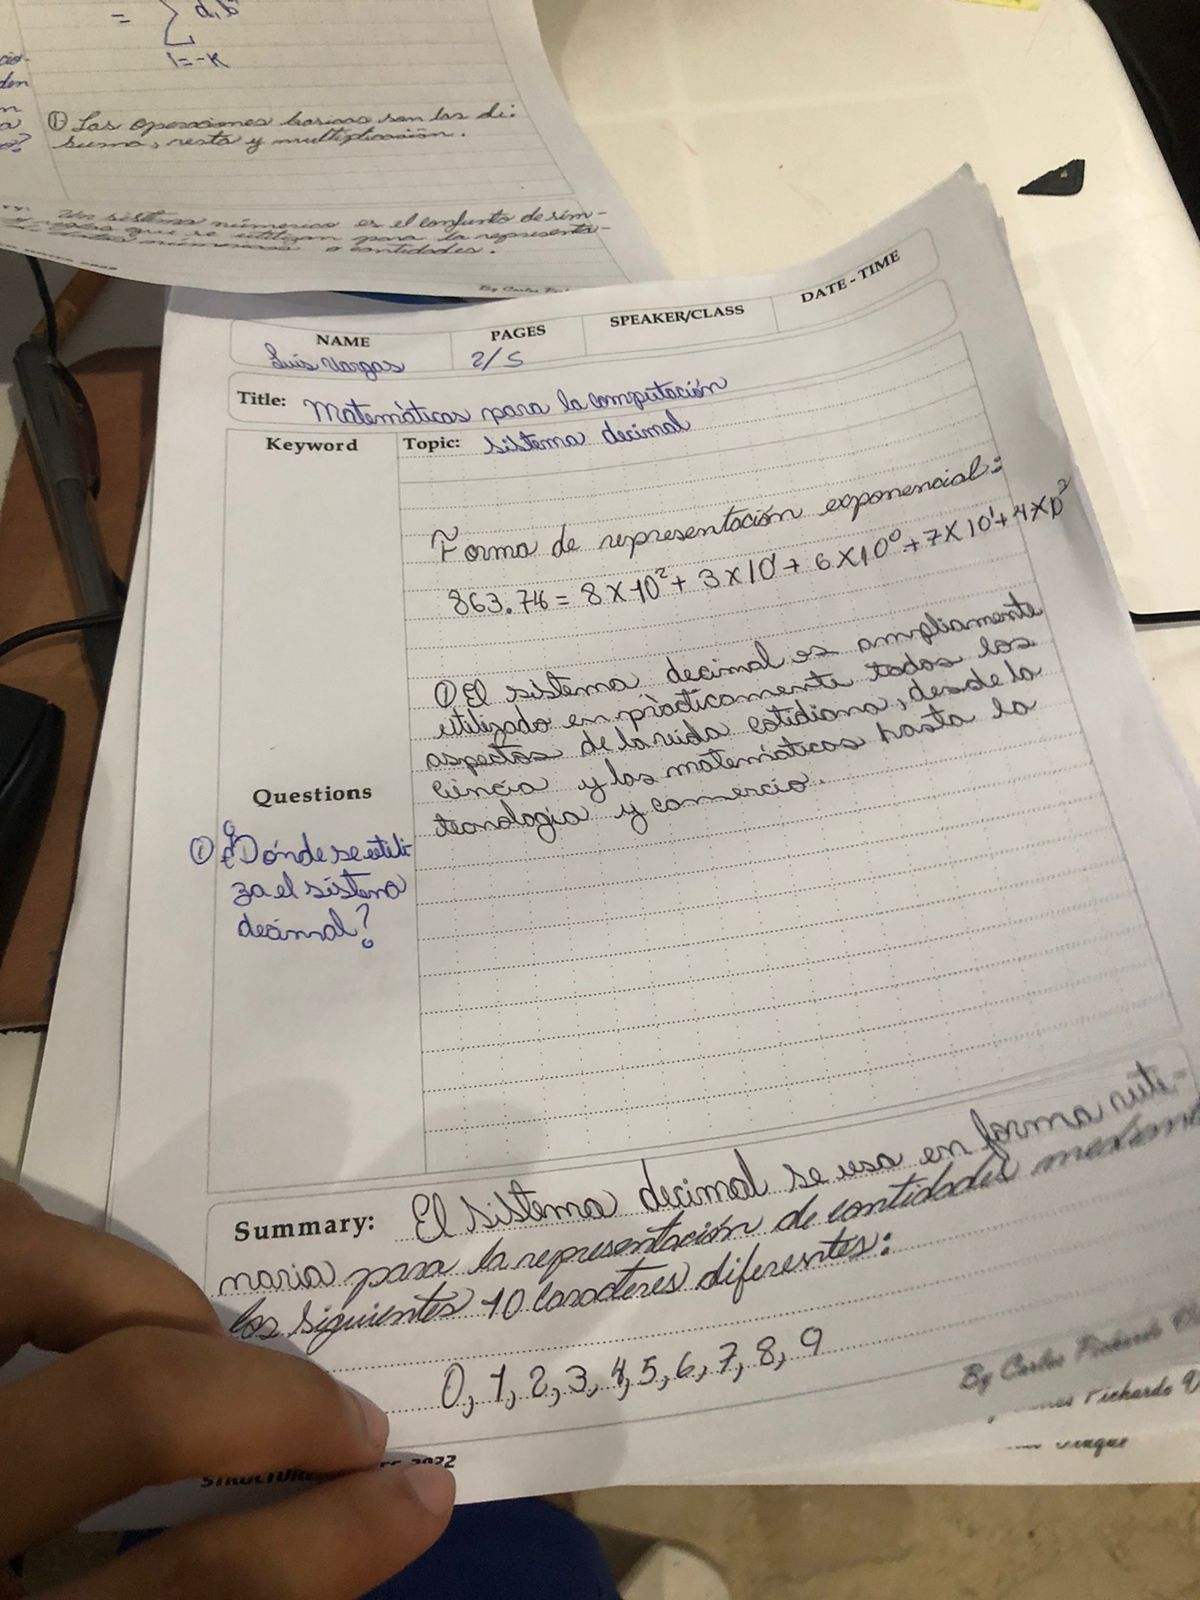 = Σ dᵢbⁱ
i=-K
cio-
den
① Las operaciones basicas son las de:
suma, resta y multiplicación.
Un sistema númerico es el conjunto de sím-
y reglas que se utilizan para la representa-
numéricos o cantidades.
By Carlos
NAME PAGES SPEAKER/CLASS DATE - TIME
Luis Vargas 2/5
Title: Matemáticas para la computación
Keyword Topic: sistema decimal
Forma de representación exponencial:
863.74 = 8 X 10² + 3 X 10¹ + 6 X 10⁰ + 7 X 10¹ + 4 X 10²
① El sistema decimal es ampliamente
utilizado en prácticamente todos los
aspectos de la vida cotidiana, desde la
ciencia y las matemáticas hasta la
tecnología y comercio.
Questions
① ¿Dónde se utili-
za el sistema
decimal?
Summary: El sistema decimal se usa en forma ruti-
naria para la representación de cantidades mediant
los siguientes 10 caracteres diferentes:
0, 1, 2, 3, 4, 5, 6, 7, 8, 9
By Carlos Pichardo
Pichardo V
2022